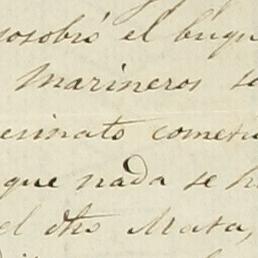 sosobró el buqu
Marineros se
esinato comet
que nada se h
el otro Mata,